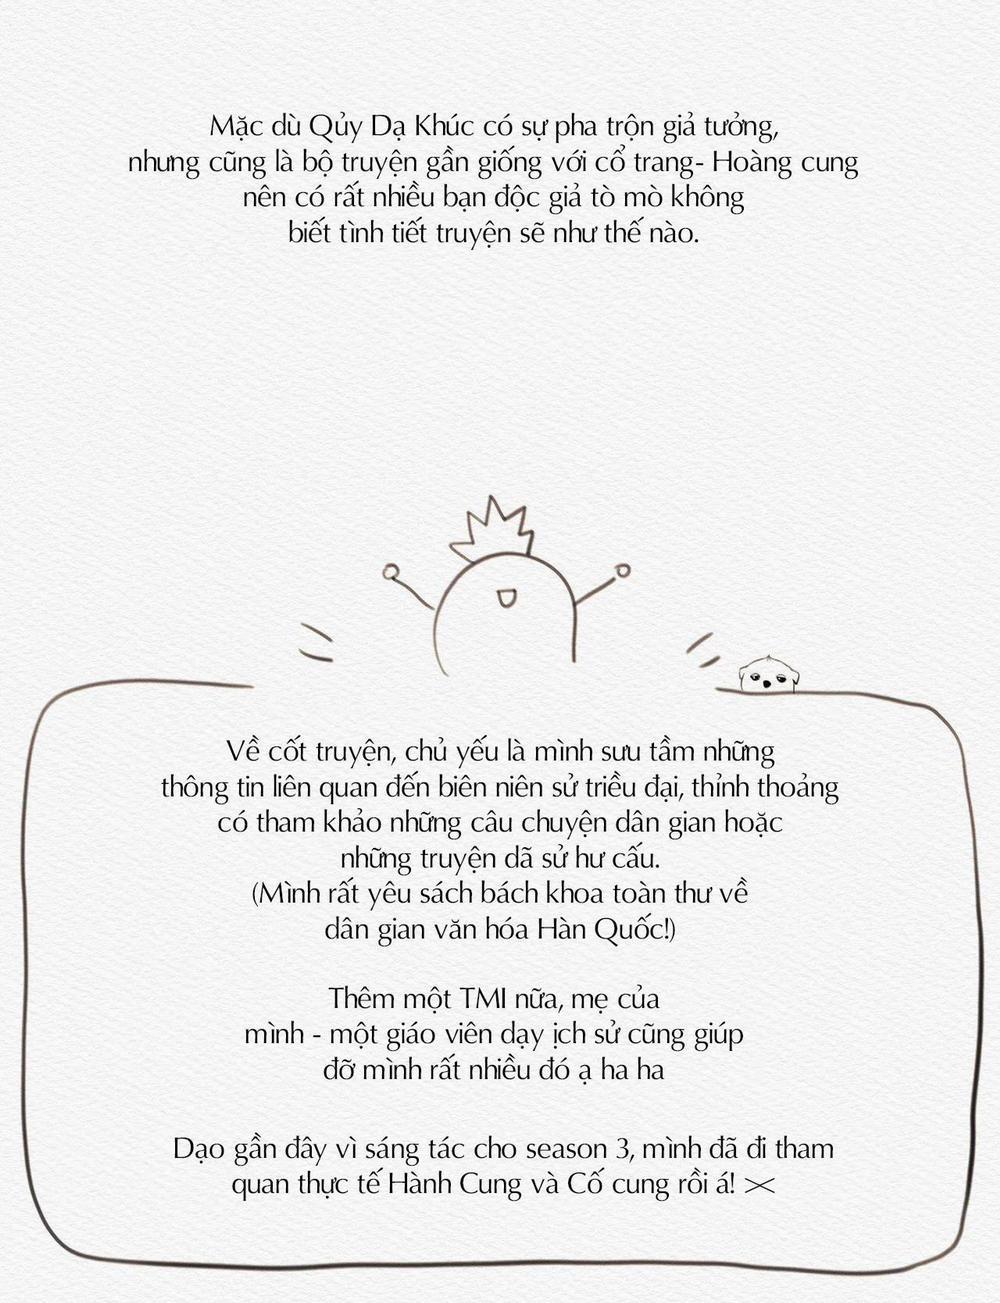 Mặc dù Qủy Dạ Khúc có sự pha trộn giả tưởng,
nhưng cũng là bộ truyện gần giống với cổ trang- Hoàng cung
nên có rất nhiều bạn độc giả tò mò không
biết tình tiết truyện sẽ như thế nào.
Về cốt truyện, chủ yếu là mình sưu tầm những
thông tin liên quan đến biên niên sử triều đại, thỉnh thoảng
có tham khảo những câu chuyện dân gian hoặc
những truyện dã sử hư cấu.
(Mình rất yêu sách bách khoa toàn thư về
dân gian văn hóa Hàn Quốc!)
Thêm một TMI nữa, mẹ của
mình - một giáo viên dạy ịch sử cũng giúp
đỡ mình rất nhiều đó ạ ha ha
Dạo gần đây vì sáng tác cho season 3, mình đã đi tham
quan thực tế Hành Cung và Cố cung rồi á! ><